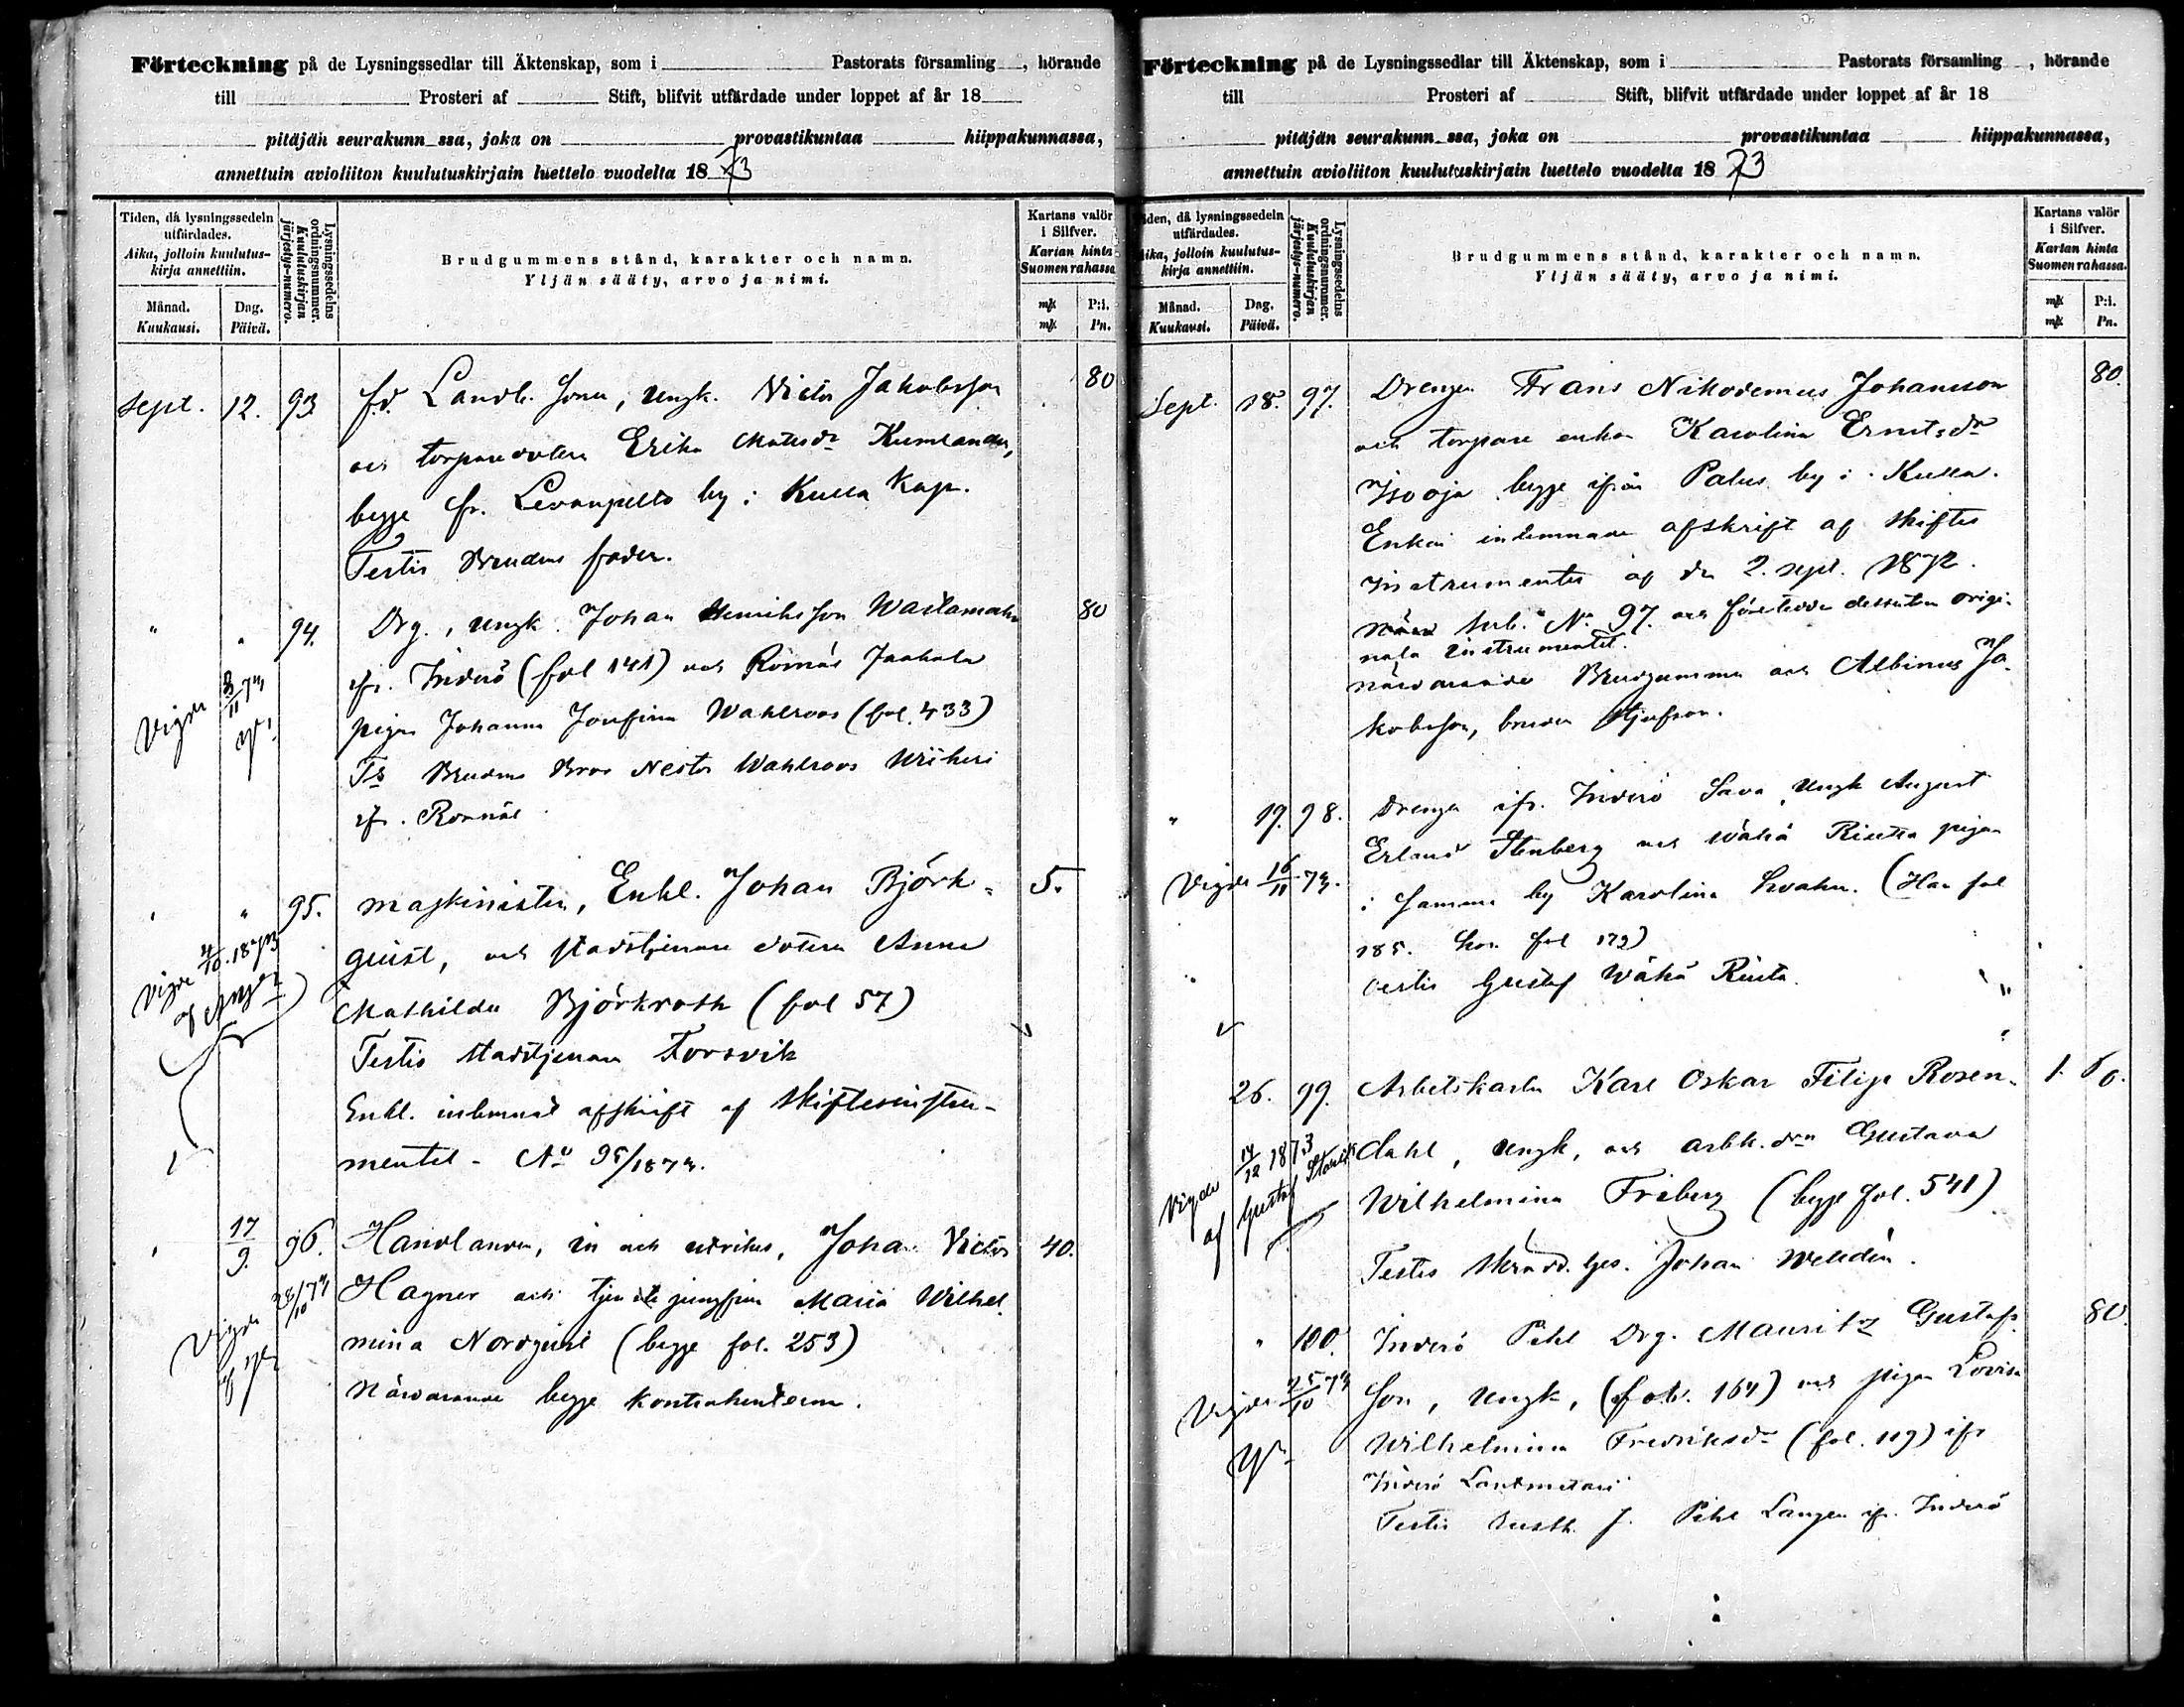 Förteckning på de Lysningssedlar till Äktenskap, som i Pastorats församling, hörande
till Prosteri af Stift, blifvit utfärdade under loppet af år 18
pitäjän seurakunn ssa, joka on provastikuntaa hiippakunnassa,
annettuin avioliiton kuulutuskirjain luettelo vuodelta 1873
Tiden, då lysningssedeln utfärdades.
Aika, jolloin kuulutus-kirja annettiin.
Månad.
Kuukausi.
Dag.
Päivä.
Lysningssedelns ordningsnummer.
Kuulutuskirjan järjestys-numero.
Brudgummens stånd, karakter och namn.
Yljän sääty, arvo ja nimi.
Kartans valör i Silfver.
Kartan hinta Suomen rahassa.
mk P:i.
mk Pn.
Sept. 12. 93 fd. Landb. sonen, Ungk. Victor Jakobsson 80
och torparedotren Erika Matsdr Kumlander,
begge fr. Levanpelto by i Kulla Kap.
Testis Brudens fader.
" " 94. Drg., Ungk. Johan Henriksson 80
ifr. Inderö (fol 141) och Romsäs Jaakola
pigan Johanna Josefina Wahlroos (fol. 433)
Vigde 3/11 73
Ts Brudens Bror Nestor Wahlroos
ifr.
" " 95. maskinisten, Enkl. Johan Björk- 5.
quist, och stadstjenare dotren Anna
Vigde 4/10. 1873
Mathilda Björkroth (fol 57)
Testis stadstjenaren Forsvik
Enkl. inlemnat afskrift af skiftesinstru-
mentet - No 95/1873.
" 17/9. 96. Handlanden, in och utrikes, Johan Victor 40.
Vigde 28/10 73
Hagner och tjenste jungfrun Maria Wilhel
mina Nordquist (begge fol. 253)
Närvarande begge kontrahenterna.
Förteckning på de Lysningssedlar till Äktenskap, som i Pastorats församling, hörande
till Prosteri af Stift, blifvit utfärdade under loppet af år 18
pitäjän seurakunn ssa, joka on provastikuntaa hiippakunnassa,
annettuin avioliiton kuulutuskirjain luettelo vuodelta 1873
Tiden, då lysningssedeln utfärdades.
Aika, jolloin kuulutus-kirja annettiin.
Månad.
Kuukausi.
Dag.
Päivä.
Lysningssedelns ordningsnummer.
Kuulutuskirjan järjestys-numero.
Brudgummens stånd, karakter och namn.
Yljän sääty, arvo ja nimi.
Kartans valör i Silfver.
Kartan hinta Suomen rahassa.
mk P:i.
mk Pn.
Sept. 18. 97. Drengen Frans Nikodemus Johansson 80.
och torpare enkan Karolina Ernstsdr
Isooja begge ifrån Palus by i Kulla.
Enkan inlemnade afskrift af skiftes
Instrumentet af den 2. sept. 1872.
sub. No 97. och företedde dessutom origi-
nala instrumentet.
närvarande Brudgummen och Albinus Ja-
kobsson, brudens styfson.
" 19. 98. Drengen ifr. Inderö Sava, Ungk August
Erland Stenberg och Wähä Riutta pigan
Vigde 16/11 73.
i samma by Karolina Svahn. (Han fol
185. hon fol 179)
Testis Gustaf Wähä Riuta.
26. 99. Arbetskarlen Karl Oskar Filip Rosen- 1. 60.
dahl, Ungk, och arbk. drn Gustava
Vigde 14/12 1873
af Gustaf
Wilhelmina Friberg (begge fol. 541)
Testis Skrädd. ges. Johan Welldén.
" 100. Inderö Pihl Drg. Mauritz Gustafs 80.
son, Ungk, (fol. 164) och pigan Lovisa
Vigde 25/10 73
Wilhelmina Fredriksdr (fol. 119) ifr
Inderö Lantmetari
Testis J. Pihl Langen ifr. Inderö